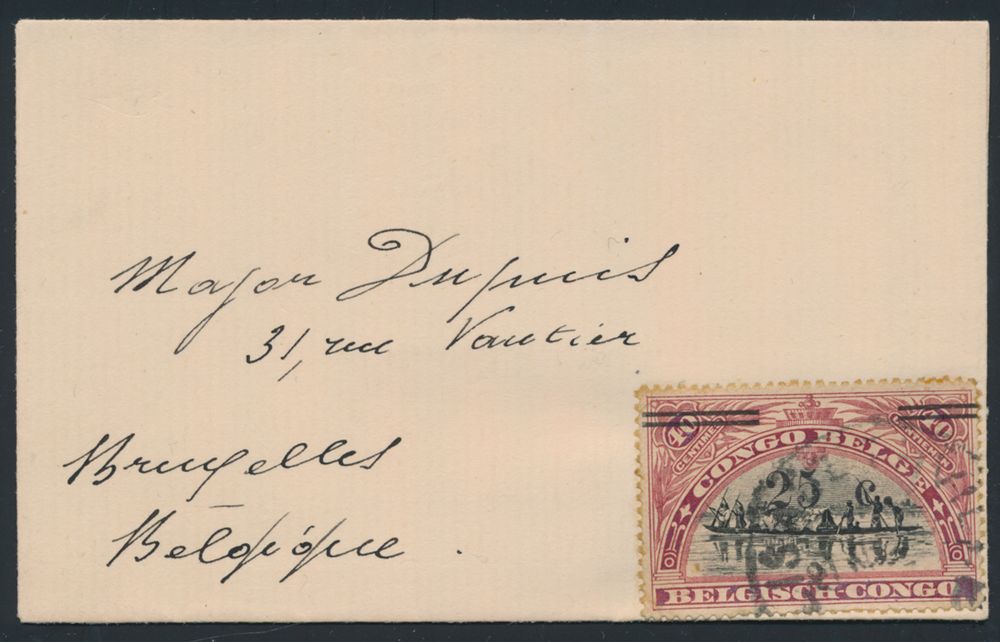 Major Dupuis
31, rue Vautier
Bruxelles
Belgique.
40 40
CENTIMES CENTIEMEN
CONGO BELGE
25 c
BELGISCH-CONGO